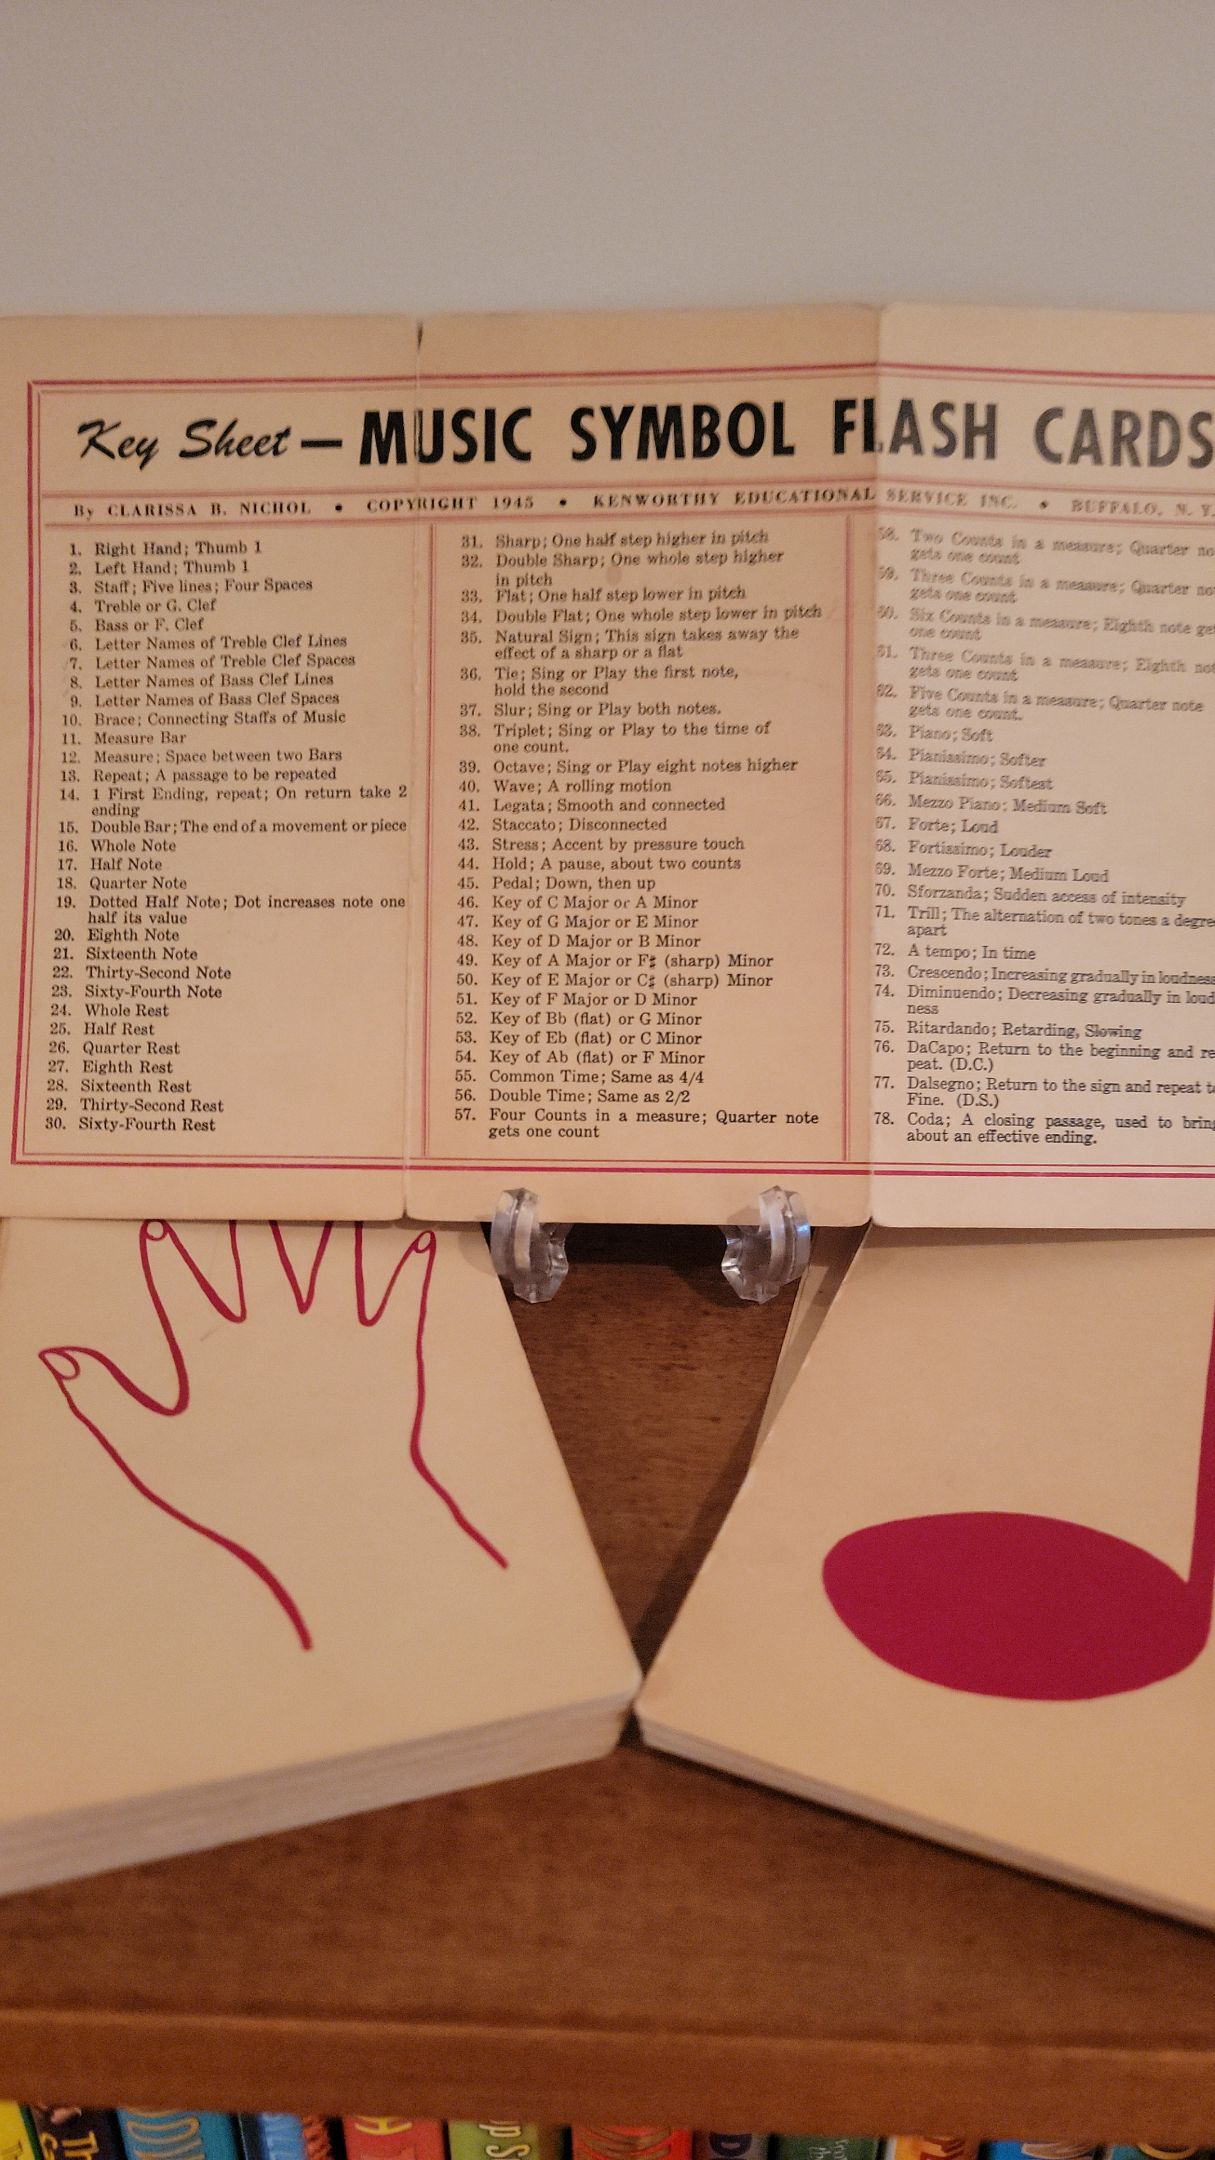 Key Sheet — MUSIC SYMBOL FLASH CARDS
By CLARISSA B. NICHOL • COPYRIGHT 1945 • KENWORTHY EDUCATIONAL SERVICE INC. • BUFFALO, N. Y.
1. Right Hand; Thumb 1
2. Left Hand; Thumb 1
3. Staff; Five lines; Four Spaces
4. Treble or G. Clef
5. Bass or F. Clef
6. Letter Names of Treble Clef Lines
7. Letter Names of Treble Clef Spaces
8. Letter Names of Bass Clef Lines
9. Letter Names of Bass Clef Spaces
10. Brace; Connecting Staffs of Music
11. Measure Bar
12. Measure; Space between two Bars
13. Repeat; A passage to be repeated
14. 1 First Ending, repeat; On return take 2
ending
15. Double Bar; The end of a movement or piece
16. Whole Note
17. Half Note
18. Quarter Note
19. Dotted Half Note; Dot increases note one
half its value
20. Eighth Note
21. Sixteenth Note
22. Thirty-Second Note
23. Sixty-Fourth Note
24. Whole Rest
25. Half Rest
26. Quarter Rest
27. Eighth Rest
28. Sixteenth Rest
29. Thirty-Second Rest
30. Sixty-Fourth Rest
31. Sharp; One half step higher in pitch
32. Double Sharp; One whole step higher
in pitch
33. Flat; One half step lower in pitch
34. Double Flat; One whole step lower in pitch
35. Natural Sign; This sign takes away the
effect of a sharp or a flat
36. Tie; Sing or Play the first note,
hold the second
37. Slur; Sing or Play both notes.
38. Triplet; Sing or Play to the time of
one count.
39. Octave; Sing or Play eight notes higher
40. Wave; A rolling motion
41. Legata; Smooth and connected
42. Staccato; Disconnected
43. Stress; Accent by pressure touch
44. Hold; A pause, about two counts
45. Pedal; Down, then up
46. Key of C Major or A Minor
47. Key of G Major or E Minor
48. Key of D Major or B Minor
49. Key of A Major or F♯ (sharp) Minor
50. Key of E Major or C♯ (sharp) Minor
51. Key of F Major or D Minor
52. Key of Bb (flat) or G Minor
53. Key of Eb (flat) or C Minor
54. Key of Ab (flat) or F Minor
55. Common Time; Same as 4/4
56. Double Time; Same as 2/2
57. Four Counts in a measure; Quarter note
gets one count
58. Two Counts in a measure; Quarter no
gets one count
59. Three Counts in a measure; Quarter no
gets one count
60. Six Counts in a measure; Eighth note ge
one count
61. Three Counts in a measure; Eighth not
gets one count
62. Five Counts in a measure; Quarter note
gets one count.
63. Piano; Soft
64. Pianissimo; Softer
65. Pianissimo; Softest
66. Mezzo Piano; Medium Soft
67. Forte; Loud
68. Fortissimo; Louder
69. Mezzo Forte; Medium Loud
70. Sforzanda; Sudden access of intensity
71. Trill; The alternation of two tones a degre
apart
72. A tempo; In time
73. Crescendo; Increasing gradually in loudness
74. Diminuendo; Decreasing gradually in loud
ness
75. Ritardando; Retarding, Slowing
76. DaCapo; Return to the beginning and re
peat. (D.C.)
77. Dalsegno; Return to the sign and repeat t
Fine. (D.S.)
78. Coda; A closing passage, used to bring
about an effective ending.